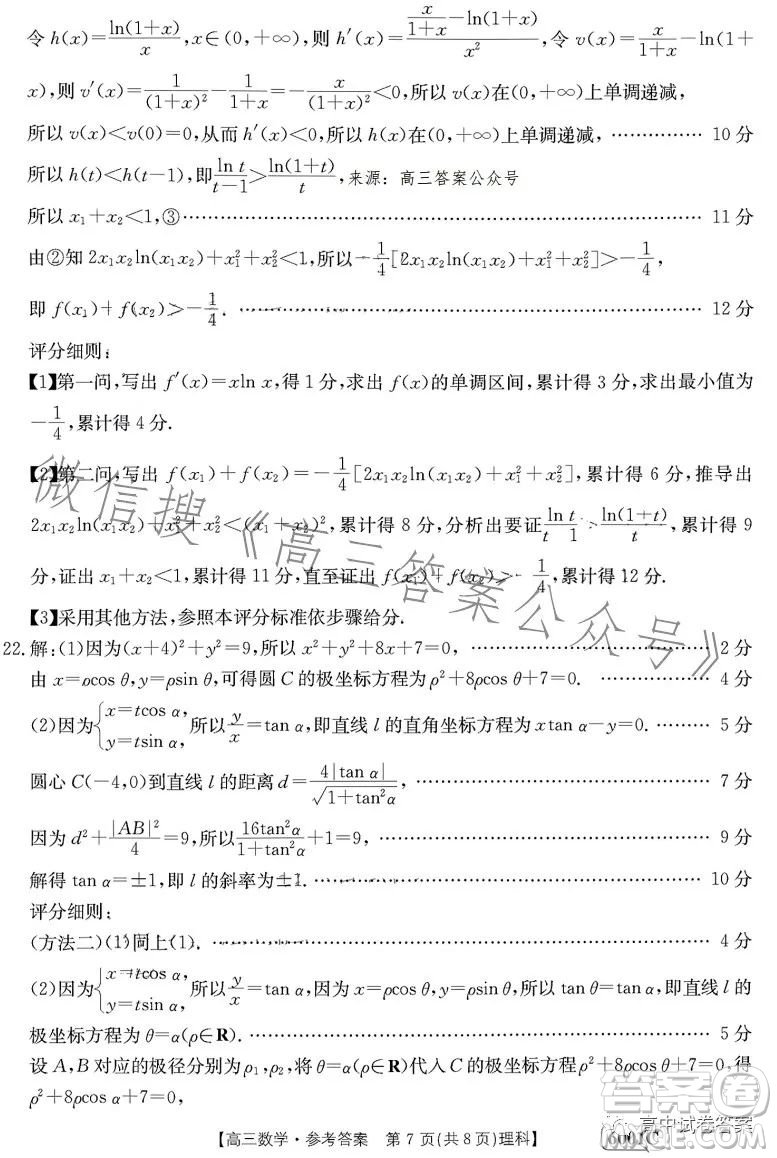 令 h(x)=\frac{ln(1+x)}{x},x∈(0,+∞),则 h′(x)=\frac{\frac{x}{1+x}-ln(1+x)}{x²},令 v(x)=\frac{x}{1+x}-ln(1+
x),则 v′(x)=\frac{1}{(1+x)²}-\frac{1}{1+x}=-\frac{x}{(1+x)²}<0,所以 v(x)在(0,+∞)上单调递减,
所以 v(x)<v(0)=0,从而 h′(x)<0,所以 h(x)在(0,+∞)上单调递减, …………… 10 分
所以 h(t)<h(t-1),即\frac{ln t}{t-1}>\frac{ln(1+t)}{t}, 来源: 高三答案公众号
所以 x₁+x₂<1,③ …………… 11 分
由②知 2x₁x₂ln(x₁x₂)+x₁²+x₂²<1,所以-\frac{1}{4}[2x₁x₂ln(x₁x₂)+x₁²+x₂²]>-\frac{1}{4},
即 f(x₁)+f(x₂)>-\frac{1}{4}. …………… 12 分
评分细则:
【1】第一问,写出 f′(x)=xln x,得 1 分,求出 f(x)的单调区间,累计得 3 分,求出最小值为
-\frac{1}{4},累计得 4 分.
【2】第二问,写出 f(x₁)+f(x₂)=-\frac{1}{4}[2x₁x₂ln(x₁x₂)+x₁²+x₂²],累计得 6 分,推导出
2x₁x₂ln(x₁x₂)+x₁²+x₂²<(x₁+x₂)²,累计得 8 分,分析出要证\frac{ln t}{t-1}>\frac{ln(1+t)}{t},累计得 9
分,证出 x₁+x₂<1,累计得 11 分,直至证出 f(x₁)+f(x₂)>-\frac{1}{4},累计得 12 分.
【3】采用其他方法,参照本评分标准依步骤给分.
微信搜《高三答案公众号》
22.解:(1)因为(x+4)²+y²=9,所以 x²+y²+8x+7=0, …………… 2 分
由 x=ρcos θ,y=ρsin θ,可得圆 C 的极坐标方程为ρ²+8ρcos θ+7=0. …………… 4 分
(2)因为{x=tcos α, y=tsin α, 所以\frac{y}{x}=tan α,即直线 l 的直角坐标方程为 xtan α-y=0. …………… 5 分
圆心 C(-4,0)到直线 l 的距离 d=\frac{4|tan α|}{\sqrt{1+tan²α}}, …………… 7 分
因为 d²+\frac{|AB|²}{4}=9,所以\frac{16tan²α}{1+tan²α}+1=9, …………… 9 分
解得 tan α=±1,即 l 的斜率为±1. …………… 10 分
评分细则:
(方法二)(1)同上(1). …………… 4 分
(2)因为{x=tcos α, y=tsin α, 所以\frac{y}{x}=tan α,因为 x=ρcos θ,y=ρsin θ,所以 tan θ=tan α,即直线 l 的
极坐标方程为 θ=α(ρ∈R). …………… 5 分
设 A,B 对应的极径分别为 ρ₁,ρ₂,将 θ=α(ρ∈R)代入 C 的极坐标方程ρ²+8ρcos θ+7=0,得
ρ²+8ρcos α+7=0,
【高三数学·参考答案 第 7 页(共 8 页)理科】
高中试卷答案